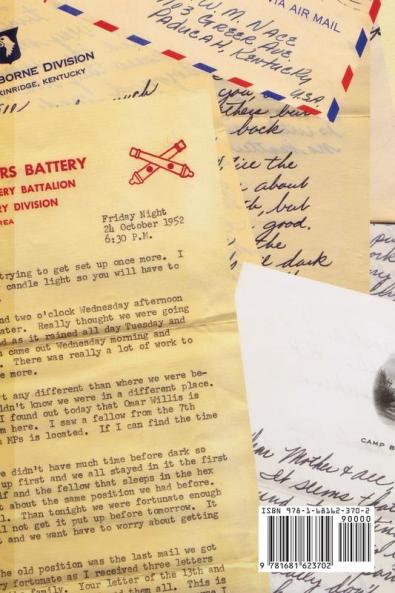 VIA AIR MAIL
W. M. Nace
703 Greer Ave.
Paducah, Kentucky
U.S.A
BORNE DIVISION
KINRIDGE, KENTUCKY
you
there but
back
till the
about
but
good.
the
dark
RS BATTERY
ERY BATTALION
RY DIVISION
REA
Friday Night
24 October 1952
6:30 P.M.
trying to get set up once more. I
candle light so you will have to
nd two o'clock Wednesday afternoon
ater. Really thought we were going
d as it rained all day Tuesday and
n came out Wednesday morning and
. There was really a lot of work to
e more.
't any different than where we were be-
ldn't know we were in a different place.
I found out today that Omar Willis is
m here. I saw a fellow from the 7th
MPs is located. If I can find the time
e didn't have much time before dark so
up first and we all stayed in it the first
lf and the fellow that sleeps in the hex
t about the same position we had before.
l. Than tonight we were fortunate enough
ll not get it put up before tomorrow. It
t and we want have to worry about getting
he old position was the last mail we got
ry fortunate as I received three letters
family. Your letter of the 13th and
them all. This is
CAMP B
Dear Mother & all,
It seems tha
ISBN 978-1-68162-370-2
90000
9 781681 623702